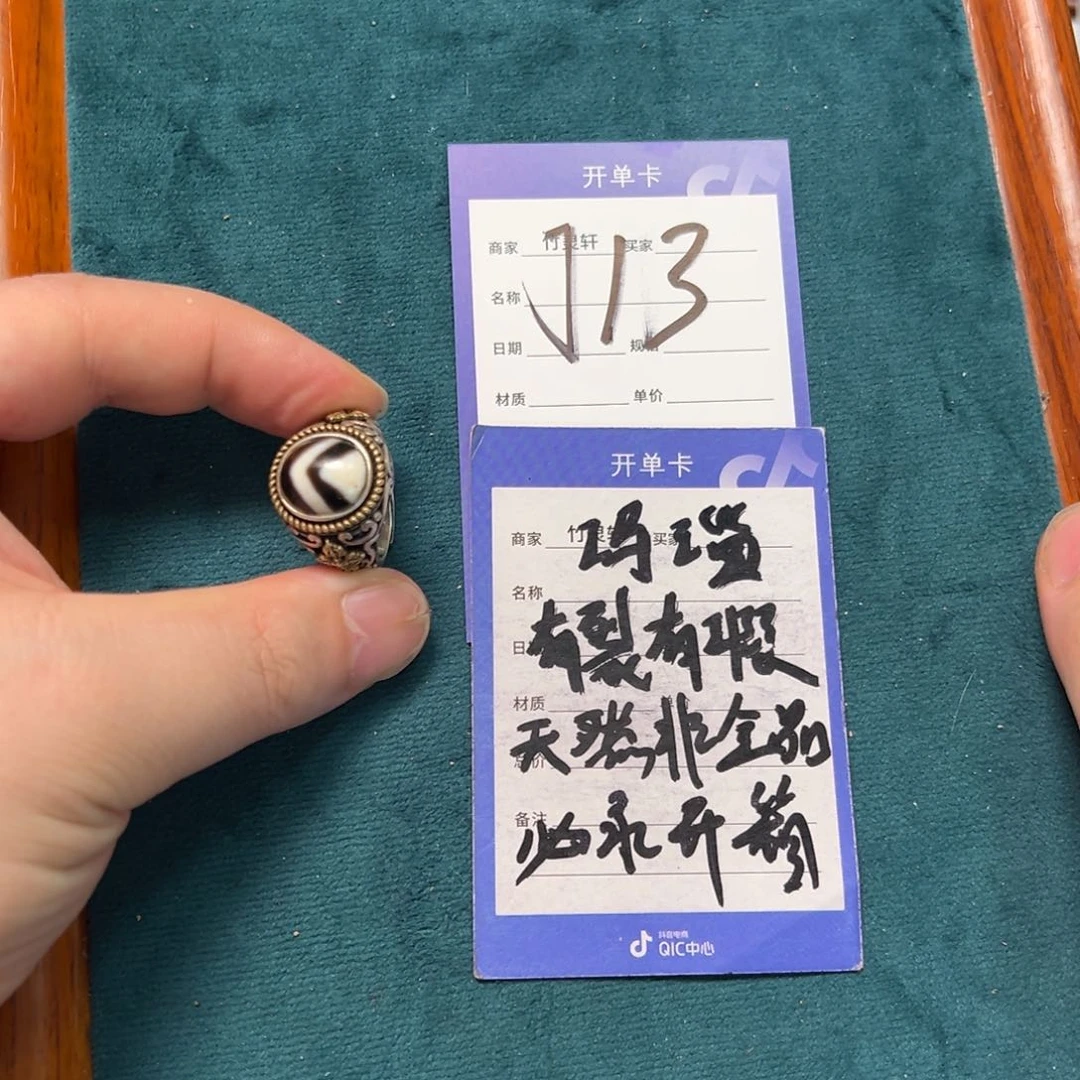 开单卡
商家 竹灵轩 买家
J13
名称
日期 规格
材质 单价
开单卡
商家 竹灵轩 买家
玛瑙
名称
有裂有瑕
材质 单价
天然非全品
总价
备注
必录开箱
抖音电商
QIC中心